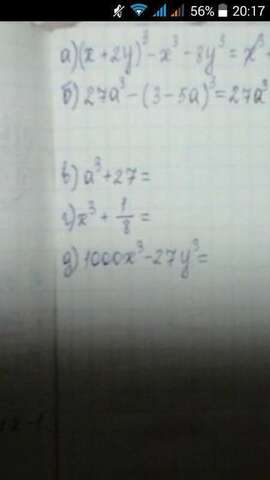 56% 20:17
а)(x+2y)³-x³-8y³=x³
б)27a³-(3-5a)³=27a³
в)a³+27=
г)x³+1/8=
д)1000x³-27y³=